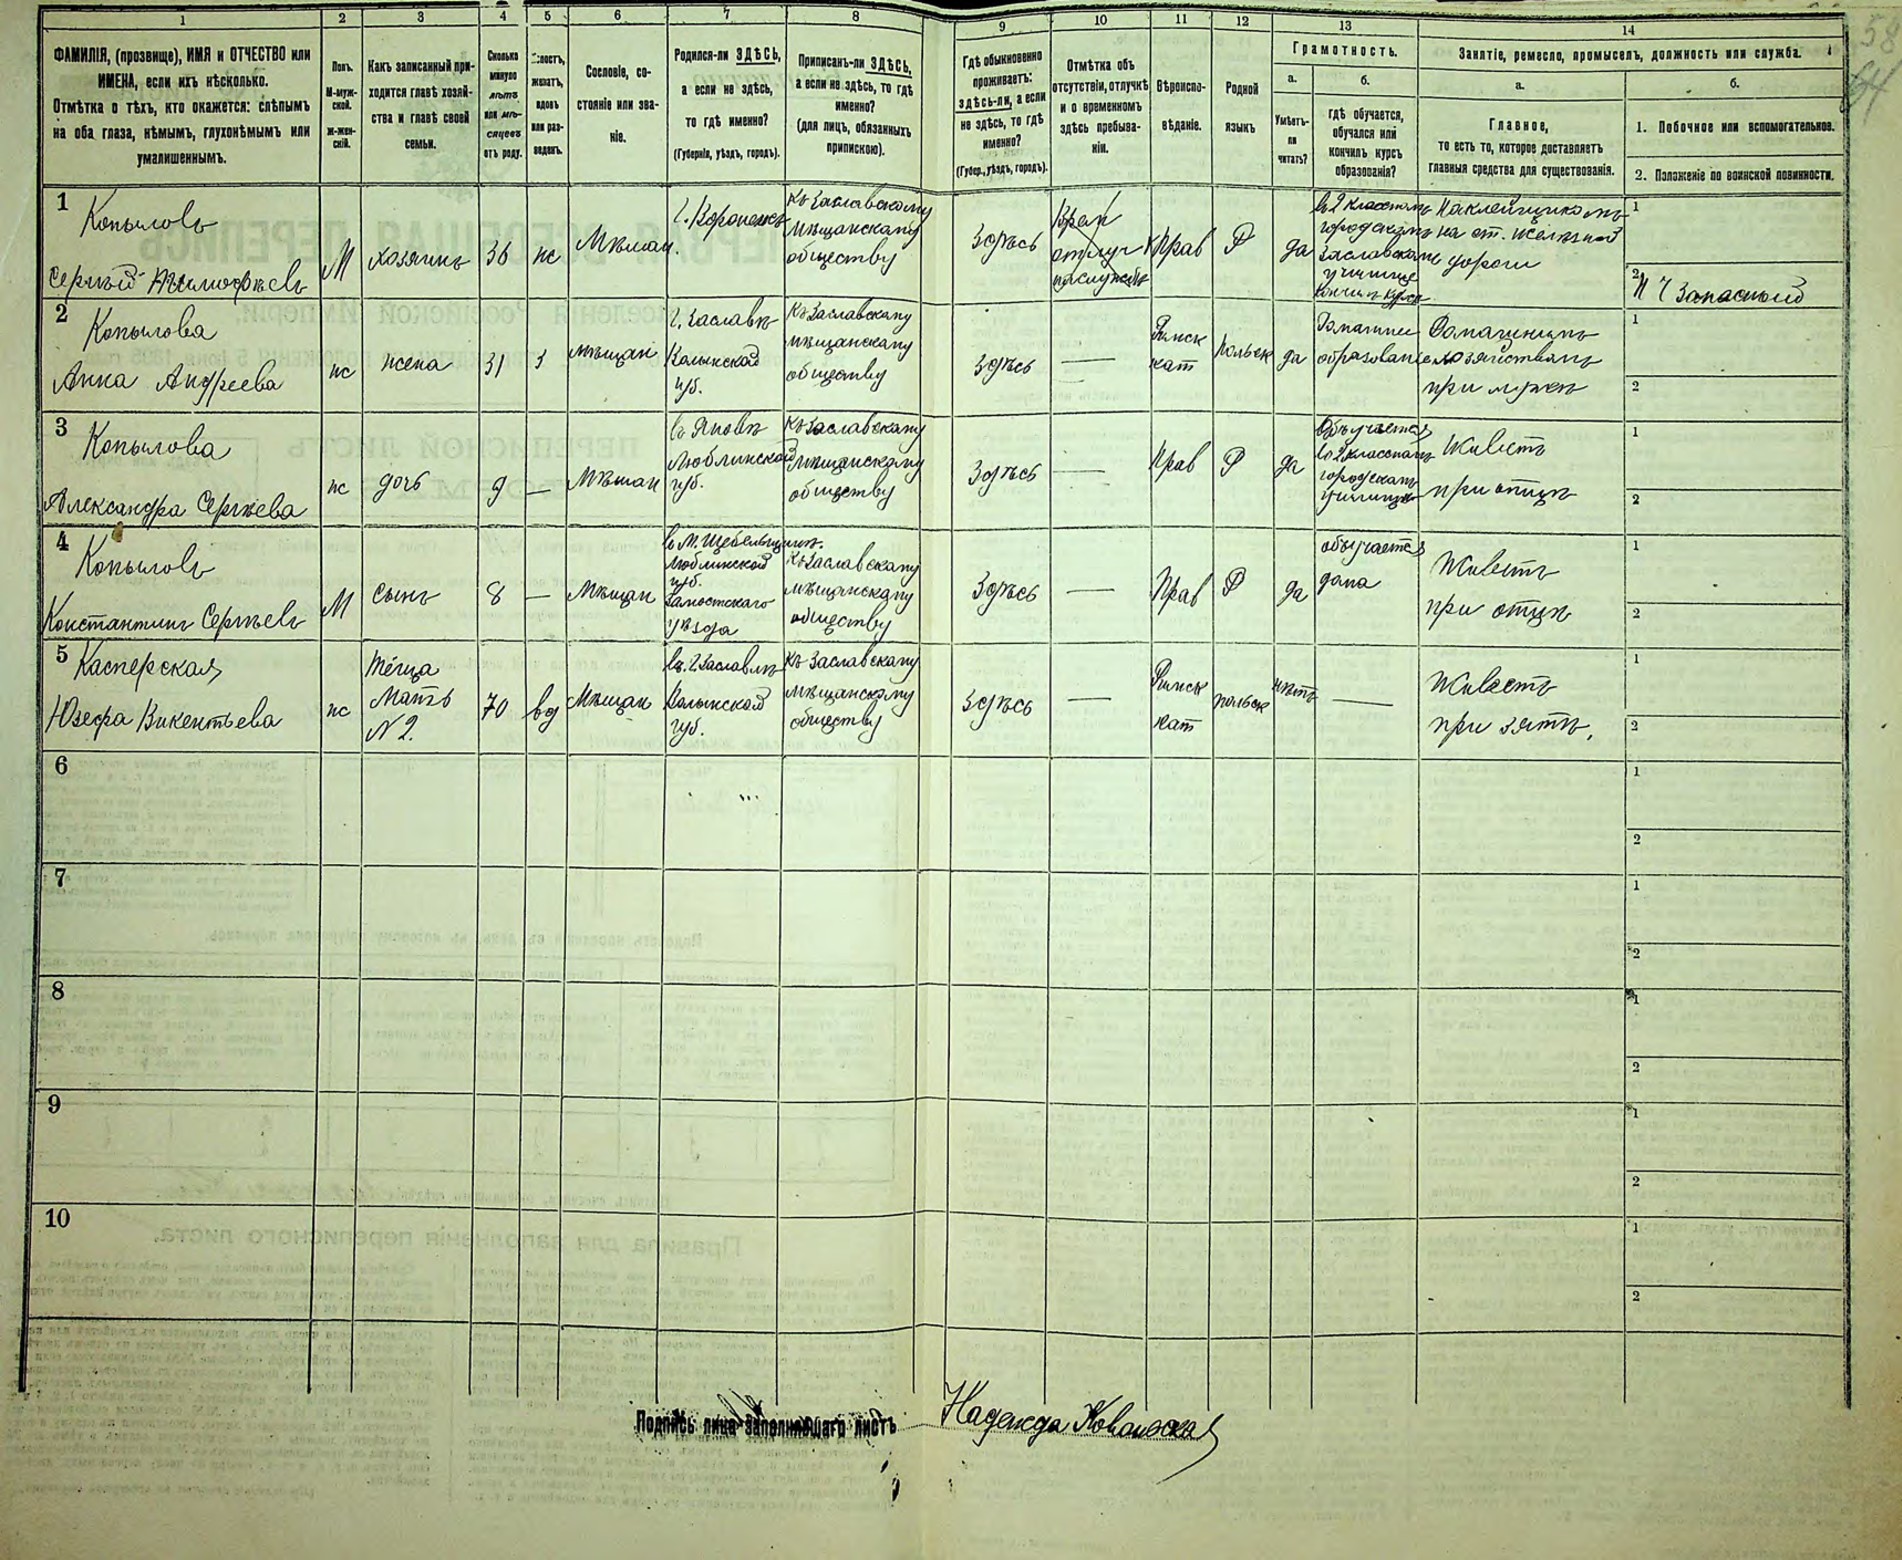 1 2 3 4 5 6 7 8 9 10 11 12 13 14
ФАМИЛІЯ, (прозвище), ИМЯ и ОТЧЕСТВО или
ИМЕНА, если ихъ нѣсколько.
Отмѣтка о тѣхъ, кто окажется: слѣпымъ
на оба глаза, нѣмымъ, глухонѣмымъ или
умалишеннымъ.
Полъ.
М-муж-
ской.
Ж-жен-
скій.
Какъ записанный при-
ходится главѣ хозяй-
ства и главѣ своей
семьи.
Сколько
минуло
лѣтъ
или мѣ-
сяцевъ
отъ роду.
Холостъ,
женатъ,
вдовъ
или раз-
веденъ.
Сословіе, со-
стояніе или зва-
ніе.
Родился-ли ЗДѢСЬ,
а если не здѣсь,
то гдѣ именно?
(Губернія, уѣздъ, городъ).
Приписанъ-ли ЗДѢСЬ,
а если не здѣсь, то гдѣ
именно?
(для лицъ, обязанныхъ
припискою).
Гдѣ обыкновенно
проживаетъ:
здѣсь-ли, а если
не здѣсь, то гдѣ
именно?
(Губер., уѣздъ, городъ).
Отмѣтка объ
отсутствіи, отлучкѣ
и о временномъ
здѣсь пребыва-
ніи.
Вѣроиспо-
вѣданіе.
Родной
языкъ
Грамотность.
а.
Умѣетъ-
ли
читать?
б.
гдѣ обучается,
обучался или
кончилъ курсъ
образованія?
Занятіе, ремесло, промыселъ, должность или служба.
а.
Главное,
то есть то, которое доставляетъ
главныя средства для существованія.
б.
1. Побочное или вспомогательное.
2. Положеніе по воинской повинности.
58
64
1
Копыловъ
Сергѣй Тимофѣевъ
М
хозяинъ
36
ж
Мѣщан.
г. Воронежъ
Къ Заславскому
мѣщанскому
обществу
Здѣсь
Врем
отлуч
по службѣ
Прав
Р
да
въ 2 классномъ
городскомъ
Заславскомъ
училищѣ
кончилъ курсъ
Наклейщикомъ
на ст. желѣзной
дороги
1
2
Запасной
2
Копылова
Анна Андреева
ж
жена
31
з
мѣщан
г. Заславъ
Волынской
губ.
Къ Заславскому
мѣщанскому
обществу
Здѣсь
—
Римск
кат
польск
да
Домашнее
образованіе
Домашнимъ
хозяйствомъ
при мужѣ
1
2
3
Копылова
Александра Сергѣева
ж
дочь
9
—
Мѣщан
въ Яновѣ
Люблинской
губ.
Къ Заславскому
мѣщанскому
обществу
Здѣсь
—
Прав
Р
да
Обучается
въ 2 классномъ
городскомъ
училищѣ
Живетъ
при отцѣ
1
2
4
Копыловъ
Константинъ Сергѣевъ
М
сынъ
8
—
Мѣщан
въ М. Щебельщин.
Люблинской
губ.
Замостскаго
уѣзда
Къ Заславскому
мѣщанскому
обществу
Здѣсь
—
Прав
Р
да
обучается
дома
Живетъ
при отцѣ
1
2
5
Касперская
Юзефа Викентьева
ж
тёща
Мать
N 2.
70
вд
Мѣщан
въ г. Заславлѣ
Волынской
губ.
Къ Заславскому
мѣщанскому
обществу
Здѣсь
—
Римск
кат
польск
нѣтъ
—
Живетъ
при зятѣ.
1
2
6
1
2
7
1
2
8
1
2
9
1
2
10
1
2
Подпись лица заполнявшаго листъ
Надежда Ковальская